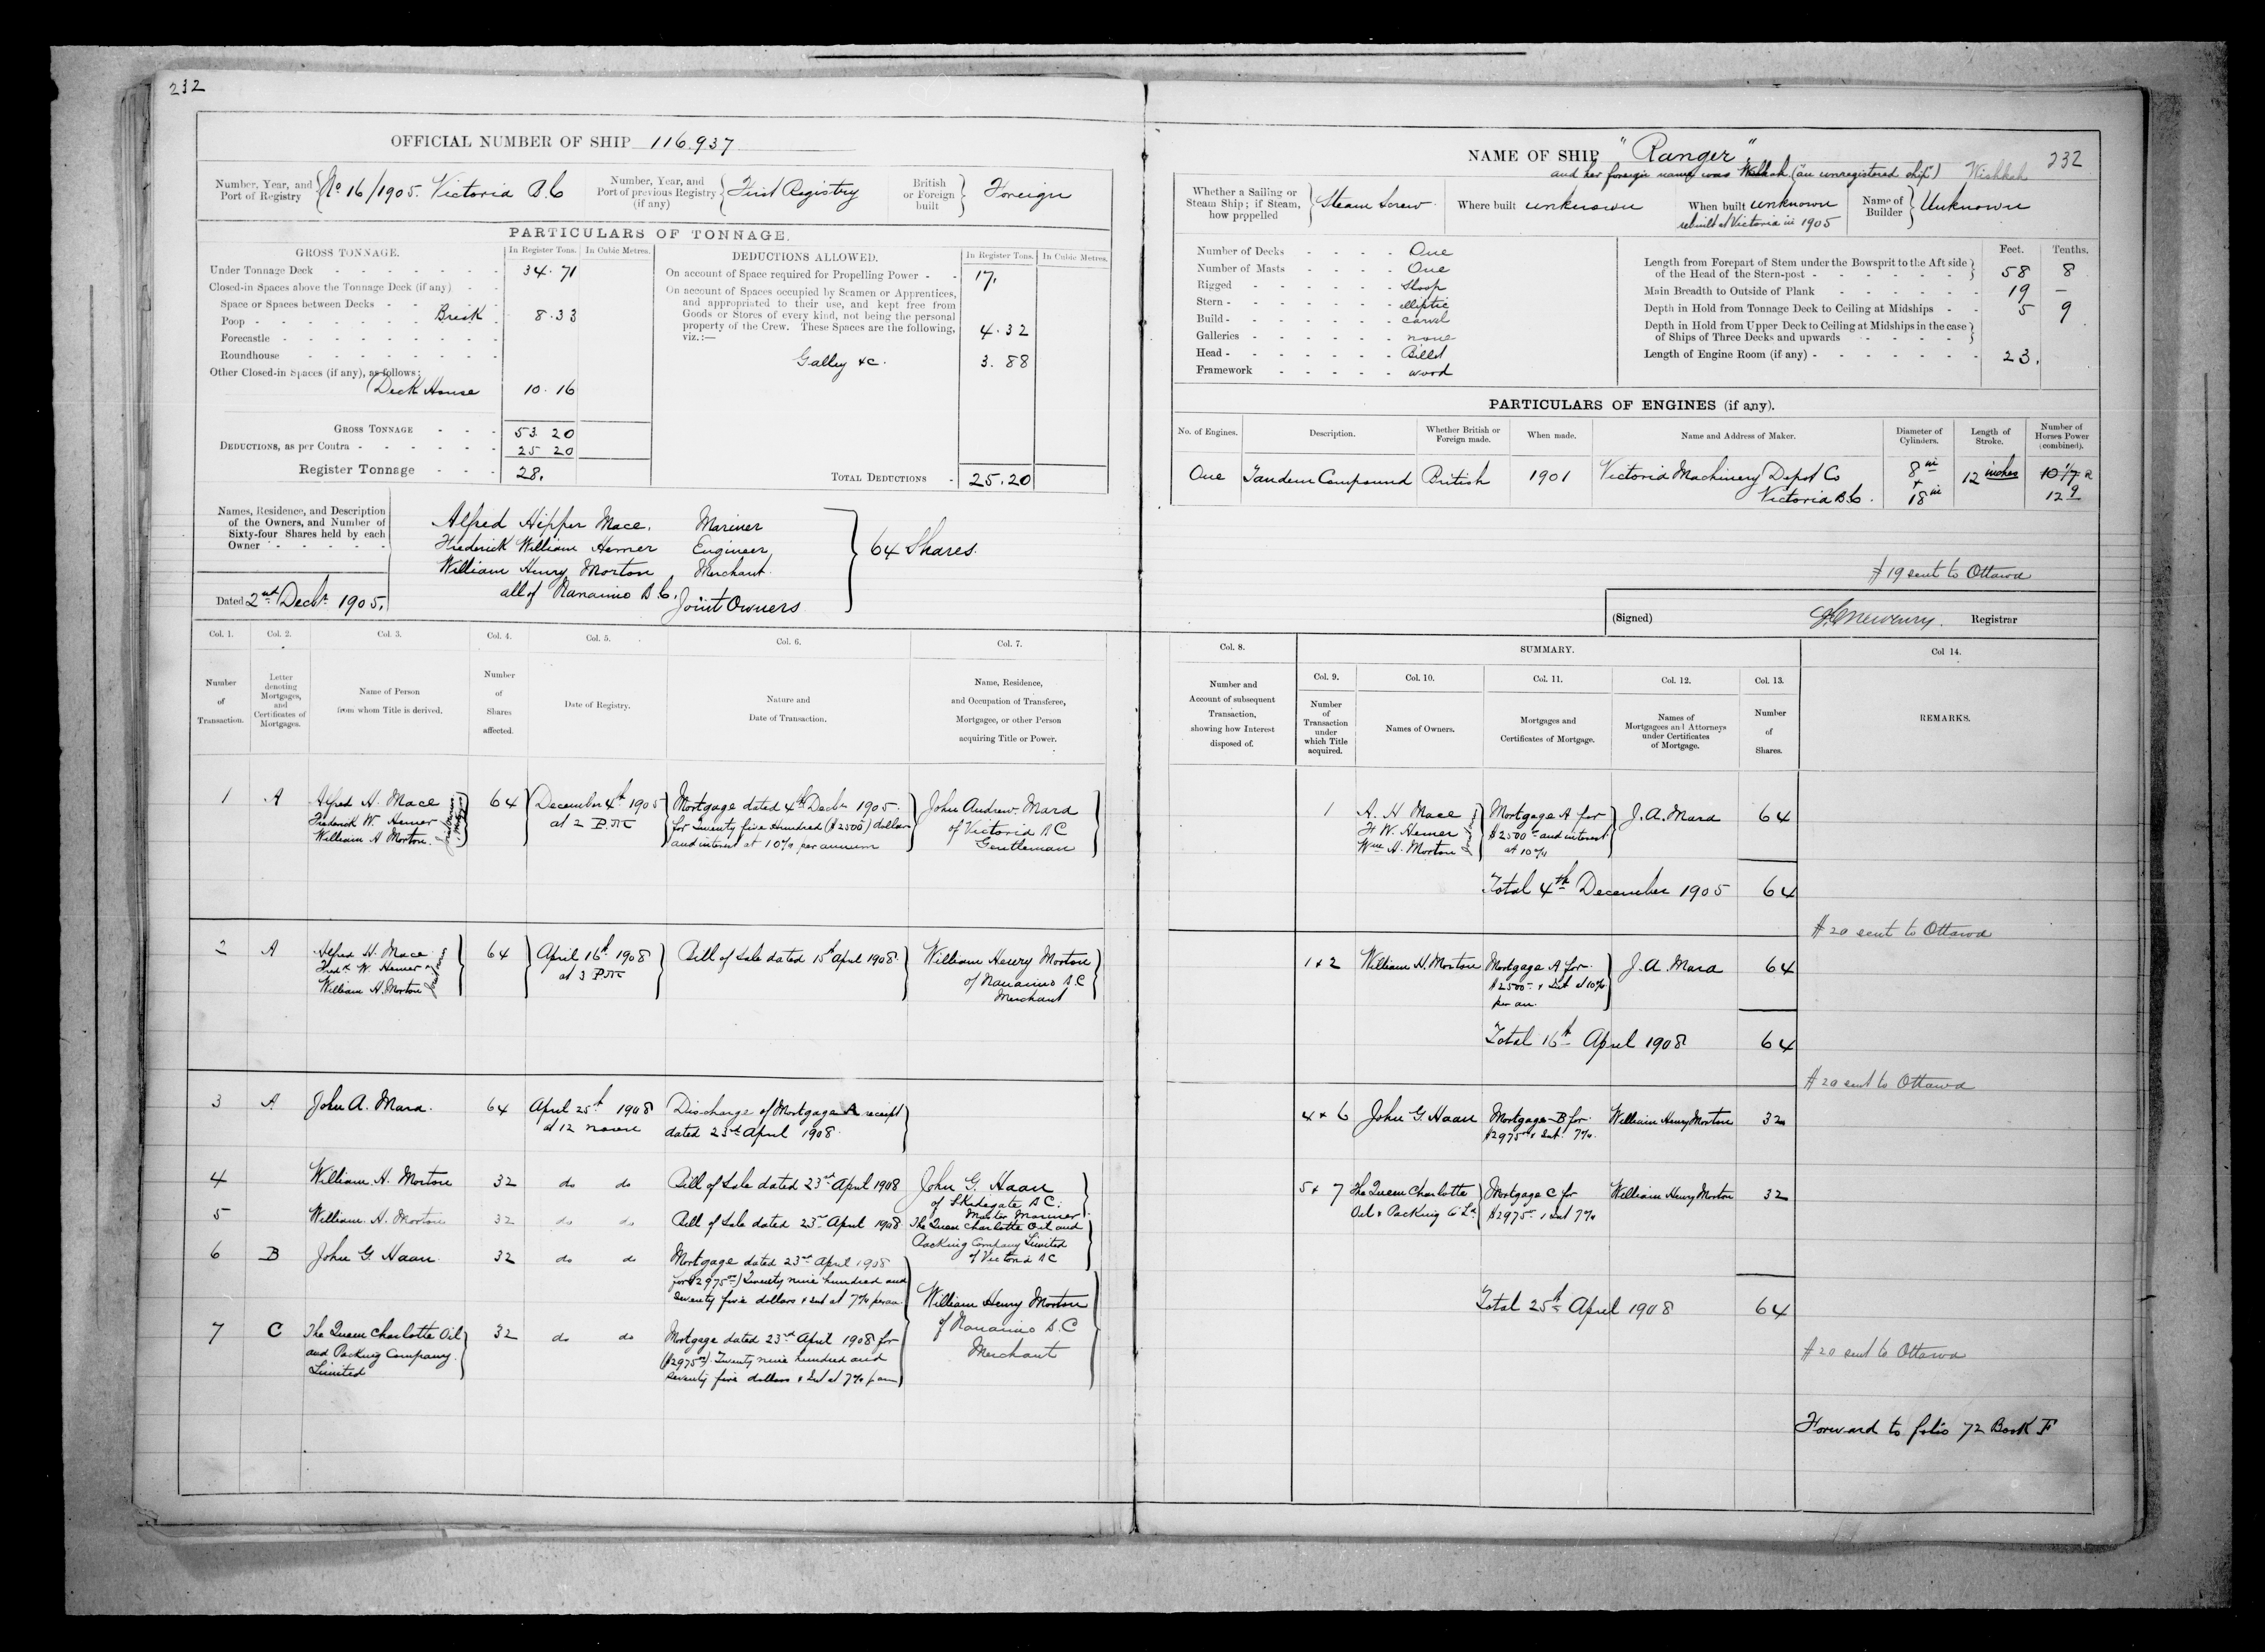 232
OFFICIAL NUMBER OF SHIP 116.937
Number, Year, and Port of Registry No 16/1905. Victoria B.C
Number, Year, and Port of previous Registry (if any) First Registry
British or Foreign built Foreign
PARTICULARS OF TONNAGE.
GROSS TONNAGE. In Register Tons. In Cubic Metres.
Under Tonnage Deck 34.71
Closed-in Spaces above the Tonnage Deck (if any)
Space or Spaces between Decks
Poop Break 8.33
Forecastle
Roundhouse
Other Closed-in Spaces (if any), as follows:
Deck House 10.16
GROSS TONNAGE 53.20
DEDUCTIONS, as per Contra 25 20
Register Tonnage 28.
DEDUCTIONS ALLOWED. In Register Tons. In Cubic Metres.
On account of Space required for Propelling Power 17.
On account of Spaces occupied by Seamen or Apprentices,
and appropriated to their use, and kept free from
Goods or Stores of every kind, not being the personal
property of the Crew. These Spaces are the following,
viz.:— 4.32
Galley &c. 3.88
TOTAL DEDUCTIONS 25.20
Names, Residence, and Description
of the Owners, and Number of
Sixty-four Shares held by each
Owner
Alfred Hipper Mace. Mariner
Frederick William Hemer Engineer
William Henry Morton Merchant
all of Nanaimo B.C. Joint Owners
64 Shares.
Dated 2nd Decbr 1905.
Col. 1. Col. 2. Col. 3. Col. 4. Col. 5. Col. 6. Col. 7.
Number of Transaction.
Letter denoting Mortgages, and Certificates of Mortgages.
Name of Person from whom Title is derived.
Number of Shares affected.
Date of Registry.
Nature and Date of Transaction.
Name, Residence, and Occupation of Transferee, Mortgagee, or other Person acquiring Title or Power.
1 A Alfred H. Mace 64 December 4th 1905 Mortgage dated 4th Decbr 1905. John Andrew Mara
Frederick W. Hemer at 2 P.M. for Twenty five Hundred ($2500) dollars of Victoria BC
William H Morton. and interest at 10% per annum Gentleman
2 A Alfred H. Mace 64 April 16th 1908 Bill of Sale dated 15th April 1908 William Henry Morton
Fredk W. Hemer at 3 P.M. of Nanaimo B.C
William H. Morton Merchant
3 A John A. Mara. 64 April 25th 1908 Discharge of Mortgage A receipt
at 12 noon dated 23rd April 1908.
4 William H. Morton 32 do do Bill of Sale dated 23rd April 1908 John G. Haan
of Skidegate B.C.
Master Mariner
5 William H. Morton 32 do do Bill of Sale dated 23rd April 1908 The Queen Charlotte Oil and
Packing Company Limited
of Victoria B.C
6 B John G Haan. 32 do do Mortgage dated 23rd April 1908
for ($2975.00) Twenty nine hundred and
seventy five dollars & Int at 7% per an.
William Henry Morton
of Nanaimo B.C
Merchant
7 C The Queen Charlotte Oil 32 do do Mortgage dated 23rd April 1908 for
and Packing Company ($2975.00). Twenty nine hundred and
Limited seventy five dollars & Int at 7% p an
NAME OF SHIP "Ranger" 232
and her foreign name was (an unregistered ship) Wishkah
Whether a Sailing or Steam Ship; if Steam, how propelled Steam Screw
Where built unknown
When built unknown
rebuilt at Victoria in 1905
Name of Builder Unknown
Number of Decks One
Number of Masts One
Rigged Sloop
Stern elliptic
Build carvel
Galleries none
Head Billet
Framework wood
Feet. Tenths.
Length from Forepart of Stem under the Bowsprit to the Aft side
of the Head of the Stern-post 58 8
Main Breadth to Outside of Plank 19 —
Depth in Hold from Tonnage Deck to Ceiling at Midships 5 9
Depth in Hold from Upper Deck to Ceiling at Midships in the case
of Ships of Three Decks and upwards
Length of Engine Room (if any) 23.
PARTICULARS OF ENGINES (if any).
No. of Engines. Description. Whether British or Foreign made. When made. Name and Address of Maker. Diameter of Cylinders. Length of Stroke. Number of Horses Power (combined).
One Tandem Compound British 1901 Victoria Machinery Depot Co 8 in 12 inches
Victoria B.C. + 18 in
# 19 sent to Ottawa
(Signed) Registrar
Col. 8. SUMMARY. Col 14.
Col. 9. Col. 10. Col. 11. Col. 12. Col. 13.
Number and Account of subsequent Transaction, showing how Interest disposed of.
Number of Transaction under which Title acquired.
Names of Owners.
Mortgages and Certificates of Mortgage.
Names of Mortgagees and Attorneys under Certificates of Mortgage.
Number of Shares.
REMARKS.
1 A. H Mace Mortgage A for J. A. Mara 64
F W. Hemer $2500 and interest
Wm H. Morton at 10%
Total 4th December 1905 64
# 20 sent to Ottawa
1 & 2 William H. Morton Mortgage A for J. A. Mara 64
$2500 & Int at 10%
per an.
Total 16th April 1908 64
# 20 sent to Ottawa
4 & 6 John G. Haan Mortgage B for William Henry Morton 32
$2975.00 & Int. 7%.
5 & 7 The Queen Charlotte Mortgage C for William Henry Morton 32
Oil & Packing Co Ld. $2975 & Int 7%
Total 25th April 1908 64
# 20 sent to Ottawa
Forward to folio 72 Book F